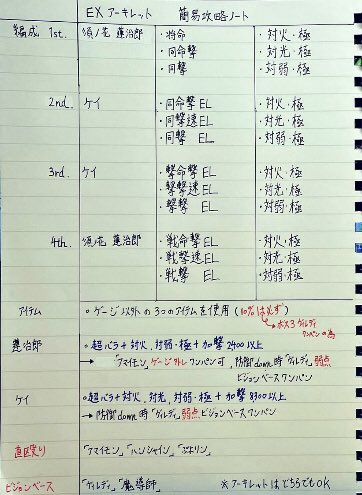 EX アーキレット 簡易攻略ノート
編成 1st. 須ノ花 蓮治郎 ・将命 ・対火・極
・同命撃 ・対光・極
・同撃 ・対弱・極
2nd. ケイ ・同命撃EL ・対火・極
・同撃速EL ・対光・極
・同撃 EL ・対弱・極
3rd. ケイ ・撃命撃EL ・対火・極
・撃撃速EL ・対光・極
・撃撃 EL ・対弱・極
4th. 須ノ花 蓮治郎 ・戦命撃EL ・対火・極
・戦撃速EL ・対光・極
・戦撃 EL ・対弱・極
アイテム ○ゲージ以外の3つのアイテムを使用(10%は必ず)
ボス3 ゲルディ ワンパンの為
蓮治郎 ○超バラ+対火、対弱・極+加撃2400以上
→「アマイモン」ゲージ外しワンパン可、防御down時「ゲルディ」弱点
ビジョンベースワンパン
ケイ ○超バラ+対火、対光、対弱・極+加撃8900以上
→防御down時「ゲルディ」弱点ビジョンベースワンパン
直殴り 「アマイモン」「ハンシャイン」「ぷよりン」
ビジョンベース 「ゲルディ」「魔導師」 ※アーキレットはどちらでもOK